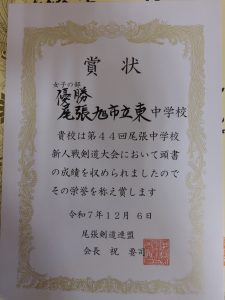 賞状
女子の部
優勝
尾張旭市立東中学校
貴校は第44回尾張中学校
新人戦剣道大会において頭書
の成績を収められましたので
その栄誉を称え賞します
令和7年12月6日
尾張剣道連盟
会長 祝 要司